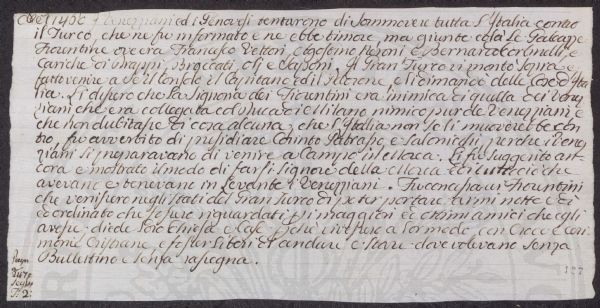 Del 1458 i Veneziani ed i Genovesi tentarono di sommovere tutta l'Italia contro
il Turco, che ne fu informato e ne ebbe timore, ma giunte colà le Galeazze
Fiorentine ov'era Francesco Vettori, e Bernardo
Cariche di Drappi, broccati, olj e Saponi, il Gran Turco vi montò sopra e
fatto venire a se il Console il Capitano ed il e li dimandò delle Cose d'Ita
lia. Si disse che la Signoria dei Fiorentini era inimica di quella dei Vene
ziani che era collegata col Duca di Milano nimico pur de Veneziani e
che non dubitasse di cosa alcuna, che l'Italia non se li muoverebbe con
tro, fu avvertito di presidiare Corinto Patrasso e Salonichi, perche i vene
ziani si preparavano di venire a Campo in Morea. Li fu suggerito anc
ora e mostrato il modo di farsi Signore della Morea e di tutto ciò che
avevano e tenevano in Levante i Veneziani. Fu concesso ai Fiorentini
che venissero negli Stati del Gran Turco di poter portare armi notte e dì
e ordinato che fossero riguardati pi maggiori ed ottimi amici che egli
avesse. diede loro Chiesa e Case perche vivessero a lor modo, con Croce e ceri
monie Cristiane, e fosser liberi di andare e stare dove volevano senza
Bullettino e senza rassegna.
127